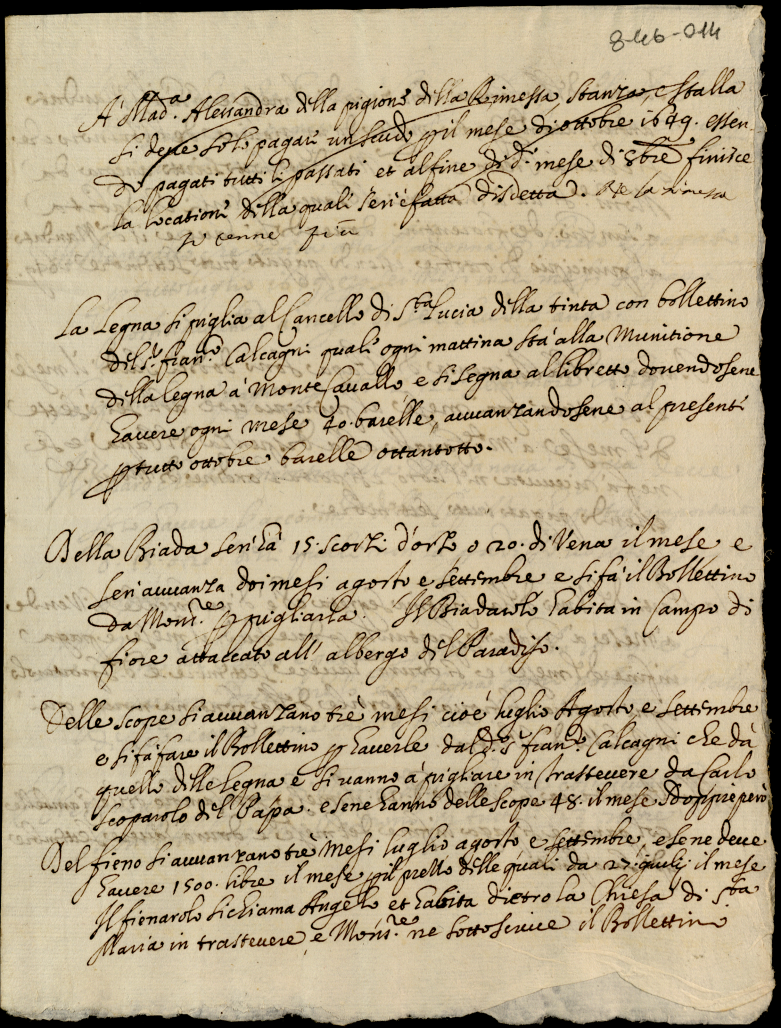 8-46-014
A' Mad.a Alessandra della pigione della Rimessa, stanza, e stalla
si deve solo pagare un scudo per il mese di ottobre 1649. essen-
do pagati tutti li passati et al fine di d.o mese di 8bre finisce
la locatione della quale seri è fatta disdetta. e la rimessa
si tenne più
La legna si piglia al Cancello di S.ta Lucia della tinta con bollettino
del S.r Fran.co Calcagni quale ogni mattina stà alla Munitione
della legna à Monte Cavallo e si segna al libretto dovendosene
havere ogni mese 40. barelle, avvanzandosene al presente
per tutto ottobre barelle ottantotto.
Della Biada seri hà 15. scorzi d'orzo o 20. di Vena il mese e
seri avvanza doi mesi agosto e settembre e si fà il Bollettino
da Mons.re per pigliarla. Il Biadarolo habita in Campo di
fiore attaccato all' albergo del Paradiso.
Delle scope si avvanzano trè mesi cioè luglio Agosto e settembre
e si fà fare il Bollettino per haverle dal d.o S.r Fran.co Calcagni che dà
quello delle legna e si vanno à pigliare in Trastevere da Carlo
scoparolo del Papa. e sene hanno delle scope 48. il mese doppie però
Del fieno si avvanzano trè mesi luglio agosto e settembre, e sene deve
havere 1500. libre il mese per il prezzo delle quali da 27. giulij il mese
Il fienarolo si chiama Angelo et habita dietro la Chiesa di S.ta
Maria in trastevere e Mons.re ne sottoscrive il Bollettino